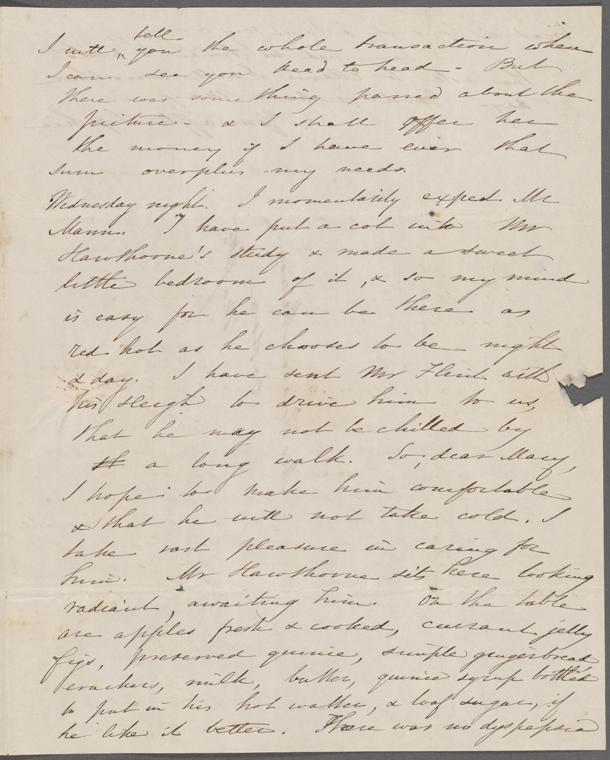 tell
I will ^ you the whole transaction when
I can see you head to head - But
there was something passed about the
picture - & I shall offer her
the money if I have ever that
sum overplus my needs.
Wednesday night. I momentarily expect Mr
Mann. I have put a cot into Mr
Hawthorne's study & made a sweet
little bedroom of it, & so my mind
is easy for he can be there as
red hot as he chooses to be night
& day. I have sent Mr Flint with
his sleigh to drive him to us,
that he may not be chilled by
a long walk. So, dear Mary,
I hope to make him comfortable
& that he will not take cold. I
take vast pleasure in caring for
him. Mr Hawthorne sits here looking
radiant, awaiting him. On the table
are apples fresh & cooked, currant jelly
figs, preserved quince, simple gingerbread
crackers, milk, butter, quince syrup bottled
to put in his hot water, & loaf sugar, if
he like it better. There was no dyspepsia